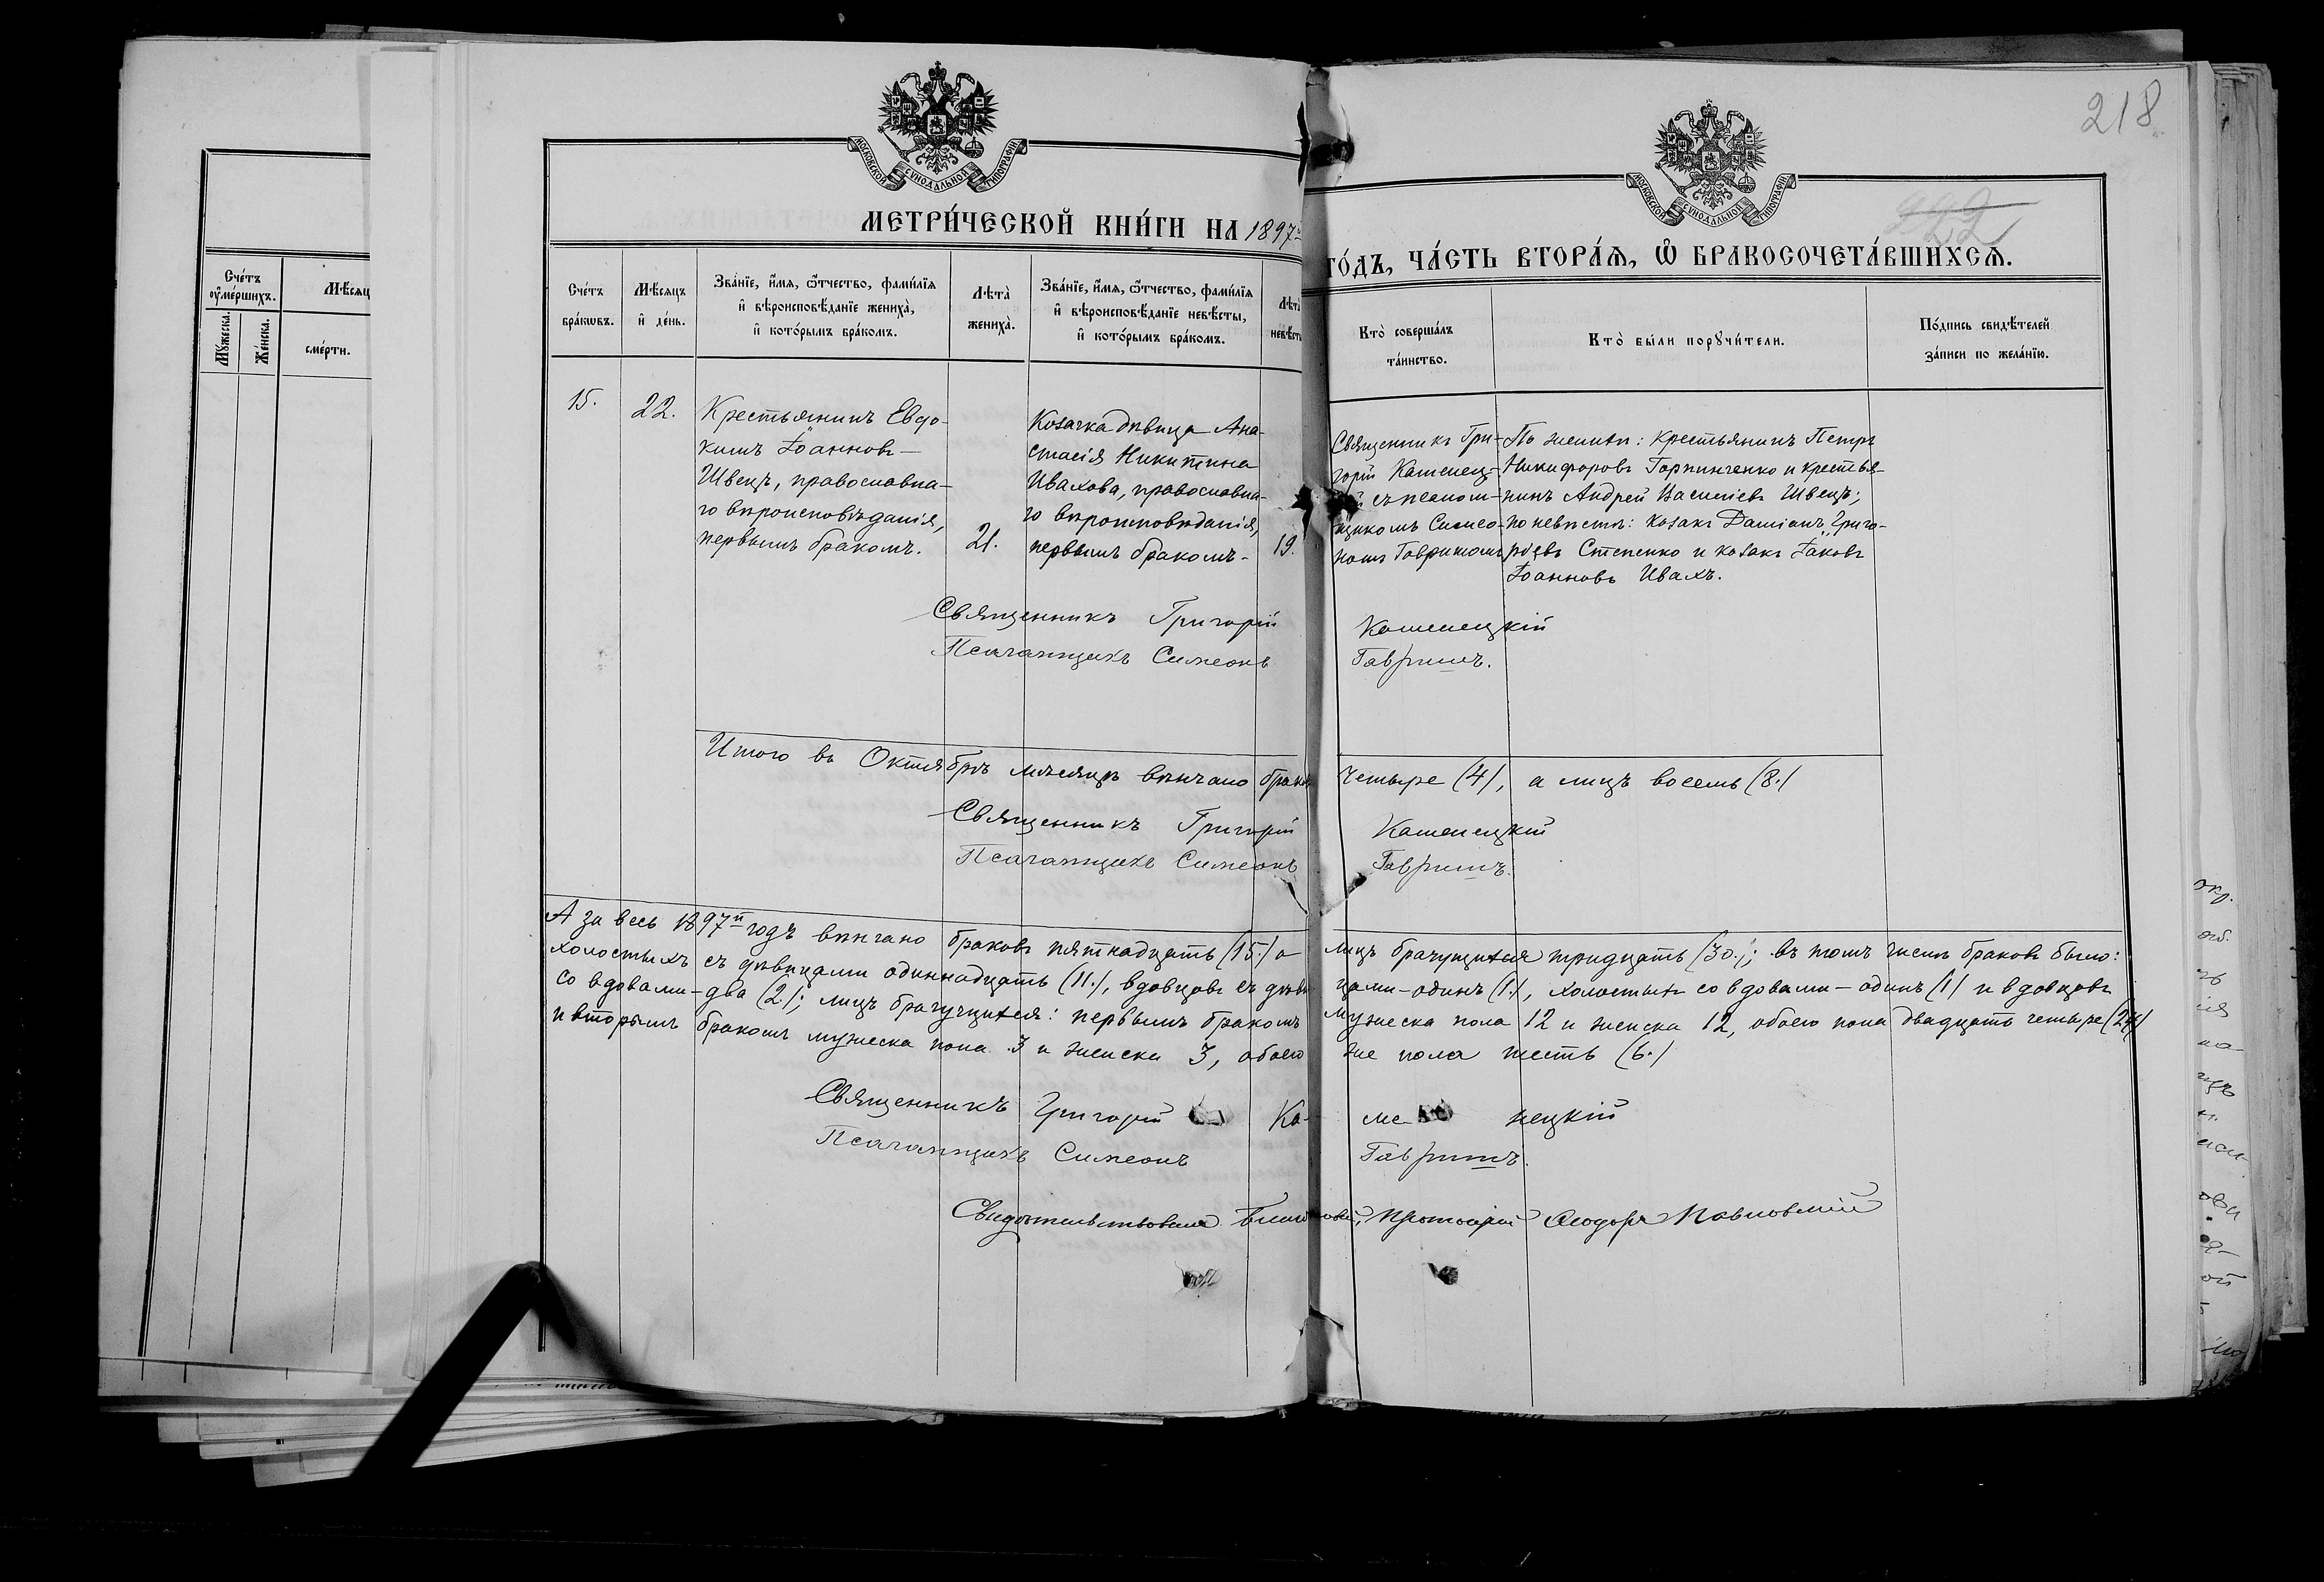 218
222
МОСКОВСКОЙ СѴНОДАЛЬНОЙ ТИПОГРАФІИ
МОСКОВСКОЙ СѴНОДАЛЬНОЙ ТИПОГРАФІИ
МЕТРИ́ЧЕСКОЙ КНИ́ГИ НА 1897й
ГО́ДЪ, ЧА́СТЬ ВТОРА́Я, Ѽ БРАКОСОЧЕТА́ВШИХСЯ.
Сче́тъ
оу҆ме́ршихъ.
Мѣ́сяц
Мꙋ́жеска.
Же́нска.
сме́рти.
Сче́тъ
бра́кѡвъ.
Мѣ́сяцъ
и҆ де́нь.
Зва́нїе, и҆́мя, ѻ҆́тчество, фами́лїя
и҆ вѣроисповѣ́данїе жениха̀,
и҆ кото́рымъ бра́комъ.
Лѣта̀
жениха̀.
Зва́нїе, и҆́мя, ѻ҆́тчество, фами́лїя
и҆ вѣроисповѣ́данїе невѣ́сты,
и҆ кото́рымъ бра́комъ.
Лѣта̀
невѣ́сты
Кто̀ соверша́лъ
та́инство.
Кто̀ бы́ли порꙋчи́тели.
По́дпись свидѣ́телей
за́писи по жела́нїю.
15.
22.
Крестьянинъ Евдо-
кимъ Іоанновъ
Швецъ, православна-
го вѣроисповѣданія,
первымъ бракомъ.
21.
Козачка дѣвица Ана-
стасія Никитина
Ивахова, православна-
го вѣроисповѣданія,
первымъ бракомъ-
19.
Священникъ Гри-
горій Каменец-
й съ псалом-
щикомъ Симео-
номъ Гавришомъ
По женихѣ: крестьянинъ Петръ
Никифоровъ Горпинченко и крестья-
нинъ Андрей Василіевъ Швецъ;
по невѣстѣ: козакъ Даміанъ Григо-
ріевъ Степенко и козакъ Іаковъ
Іоанновъ Ивахъ.
Священникъ Григорій Каменецкій
Псаломщикъ Симеонъ Гавришъ.
Итого въ Октябрѣ мѣсяцѣ вѣнчано браковъ четыре (4), а лицъ восемь (8.)
Священникъ Григорій Каменецкій
Псаломщикъ Симеонъ Гавришъ.
А за весь 1897й годъ вѣнчано браковъ пятнадцать (15.) а лицъ брачущихся тридцать (30.); въ томъ числѣ браковъ было:
холостыхъ съ дѣвицами одиннадцать (11.), вдовцовъ съ дѣви цами-одинъ (1.), холостыхъ со вдовами-одинъ (1) и вдовцовъ
со вдовами-два (2.); лицъ брачущихся: первымъ бракомъ мужеска пола 12 и женска 12, обоего пола двадцать четыре (24)
и вторымъ бракомъ мужеска пола 3 и женска 3, обоего же пола шесть (6.)
Священникъ Григорій Ка- ме нецкій
Псаломщикъ Симеонъ Гавришъ.
Свидѣтельствовалъ Протоіерей Ѳеодоръ Павловскій